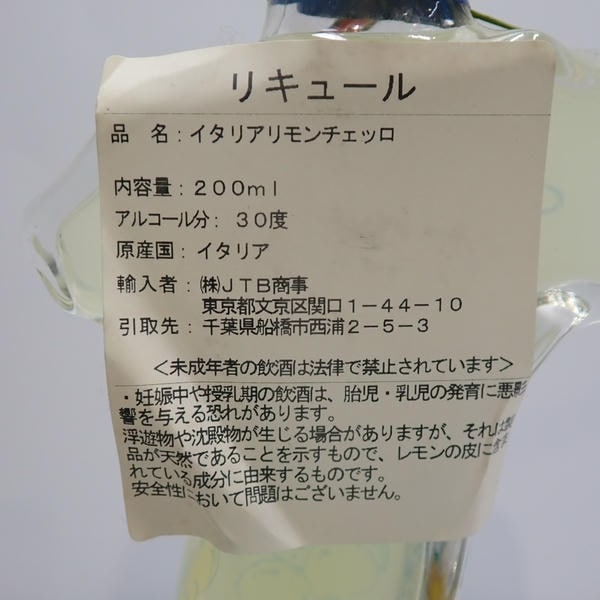 リキュール
品 名：イタリアリモンチェッロ
内容量：２００ｍｌ
アルコール分：３０度
原産国：イタリア
輸入者：㈱ＪＴＢ商事
東京都文京区関口１－４４－１０
引取先：千葉県船橋市西浦２－５－３
＜未成年者の飲酒は法律で禁止されています＞
・妊娠中や授乳期の飲酒は、胎児・乳児の発育に悪影
響を与える恐れがあります。
浮遊物や沈殿物が生じる場合がありますが、それは製
品が天然であることを示すもので、レモンの皮に含ま
れている成分に由来するものです。
安全性において問題はございません。